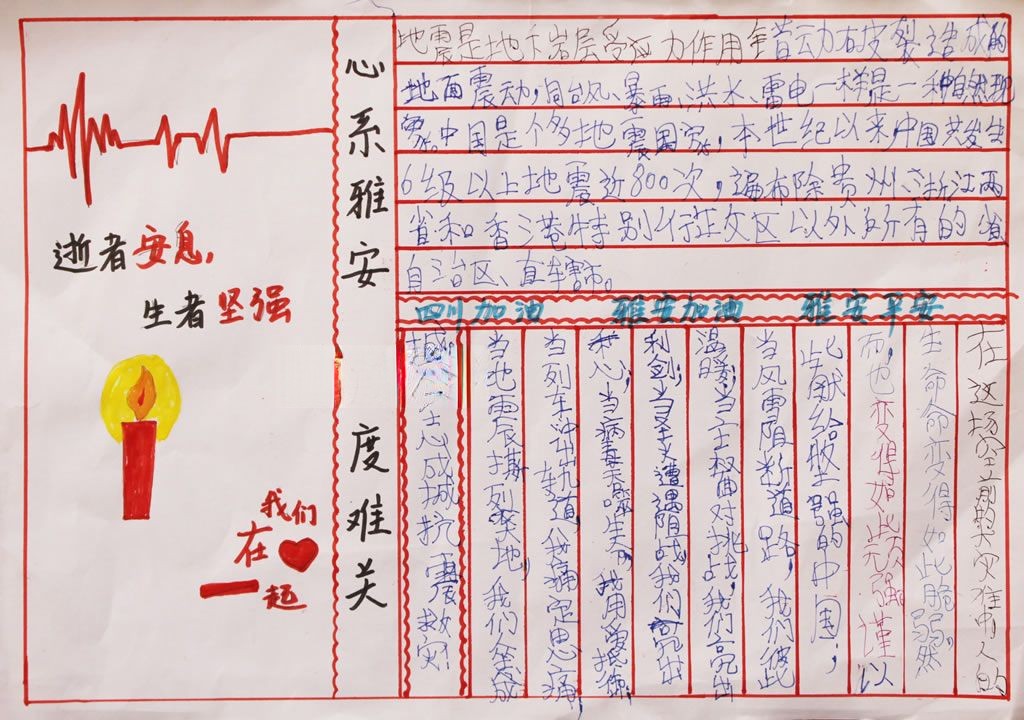 逝者安息,
生者坚强
我们
在
一起
心系雅安
度难关
地震是地下岩层受应力作用
地面震动,同台风、暴雨、洪水、雷电一样是一种自然现
象。中国是个多地震国家,本世纪以来,中国共发生
6级以上地震近800次,遍布除贵州、浙江两
省和香港特别行政区以外所有的省
自治区、直辖市。
四川加油 雅安加油 雅安平安
在这场空前的大灾难中人的
生命变得如此脆弱。然
而,也变得如此顽强谨以
此献给坚强的中国;
当风雪阻断道路,我们彼此
温暖;当主权面对挑战,我们亮出
利剑;当圣火遭遇阻战,我们亮出
心;当病毒感染生命,我用爱抵御;
当列车冲出轨道,我痛定思痛,
当地震撕列大地,我们坐成
城,
众心成城抗震救灾!